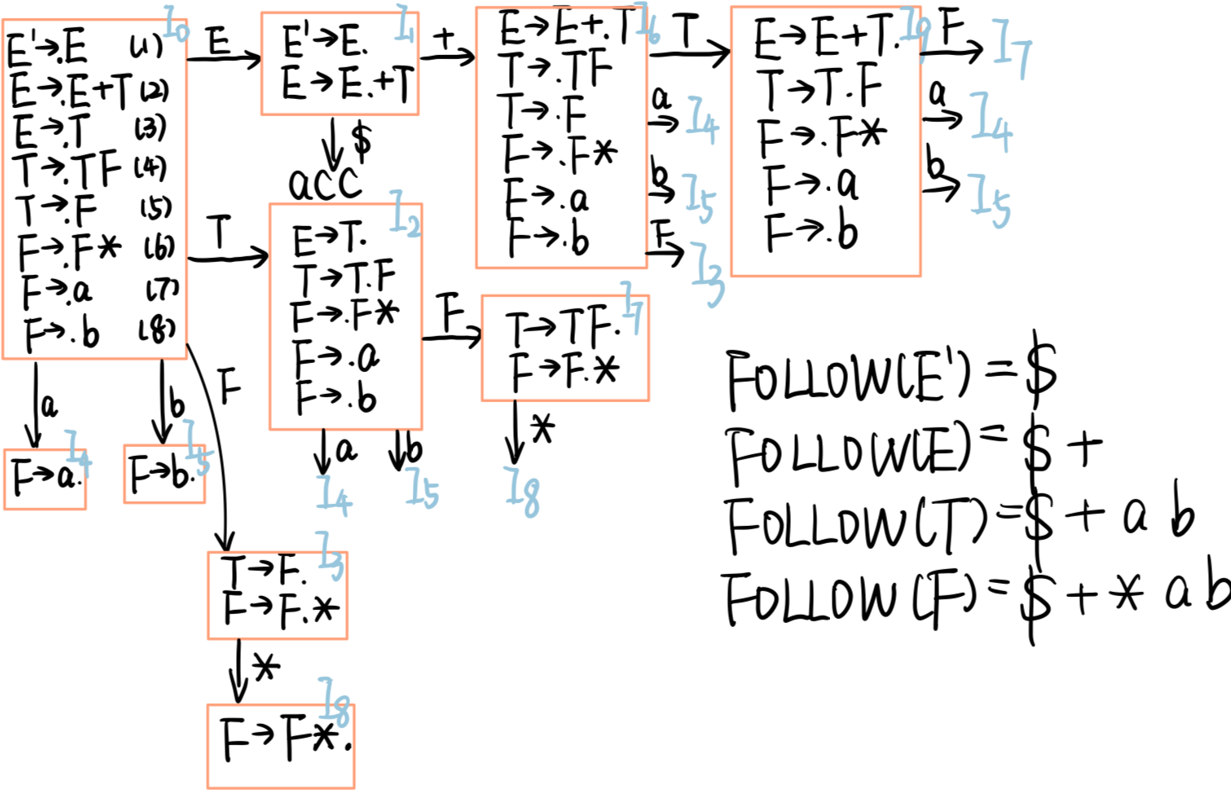 I0
E'→.E (1)
E→.E+T (2)
E→.T (3)
T→.TF (4)
T→.F (5)
F→.F* (6)
F→.a (7)
F→.b (8)
E
I1
E'→E.
E→E.+T
$
acc
+
I6
E→E+.T
T→.TF
T→.F
F→.F*
F→.a
F→.b
T
a I4
b I5
F I3
I9
E→E+T.
T→T.F
F→.F*
F→.a
F→.b
F I7
a I4
b I5
T
I2
E→T.
T→T.F
F→.F*
F→.a
F→.b
a I4
b I5
F
I7
T→TF.
F→F.*
*
I8
a
I4
F→a.
b
I5
F→b.
F
I3
T→F.
F→F.*
*
I8
F→F*.
FOLLOW(E')=$
FOLLOW(E)=$ +
FOLLOW(T)=$ + a b
FOLLOW(F)=$ + * a b